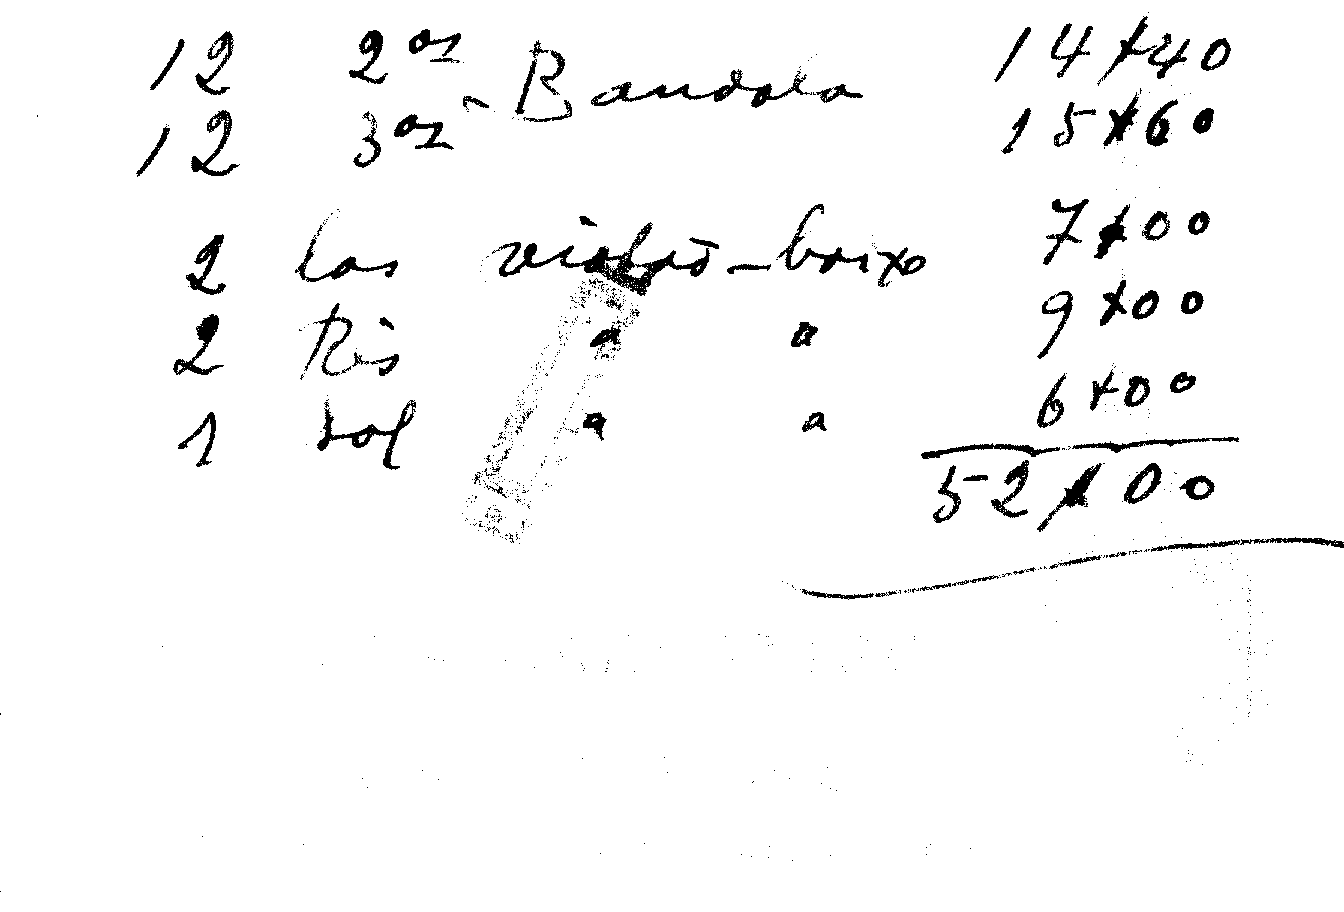 12 2as - Bandola 14$40
12 3as 15$60
2 las violão-baixo 7$00
2 Rés " " 9$00
1 sol " " 6$00
52$00